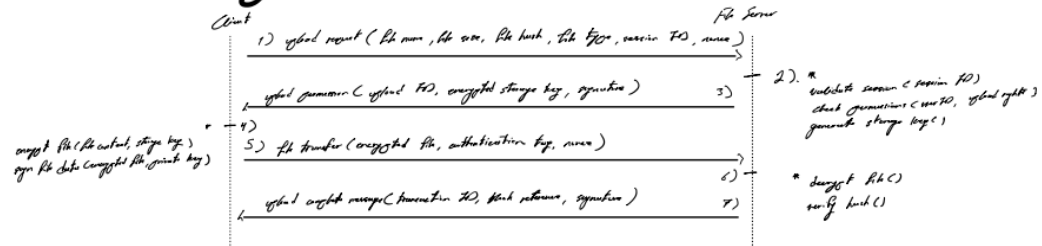 Client
File Server
1) upload request ( file name , file size, file hash, file type, session ID, nonce )
2). *
validate session ( session ID)
check permissions ( user ID, upload rights )
generate storage key ( )
upload permission ( upload ID, encrypted storage key, signature ) 3)
* 4)
encrypt file ( file content, storage key )
sign file data ( encrypted file, private key )
5) file transfer ( encrypted file, authentication tag, nonce )
6) *
decrypt file ( )
verify hash ( )
upload complete message ( transaction ID, hash reference, signature ) 7)